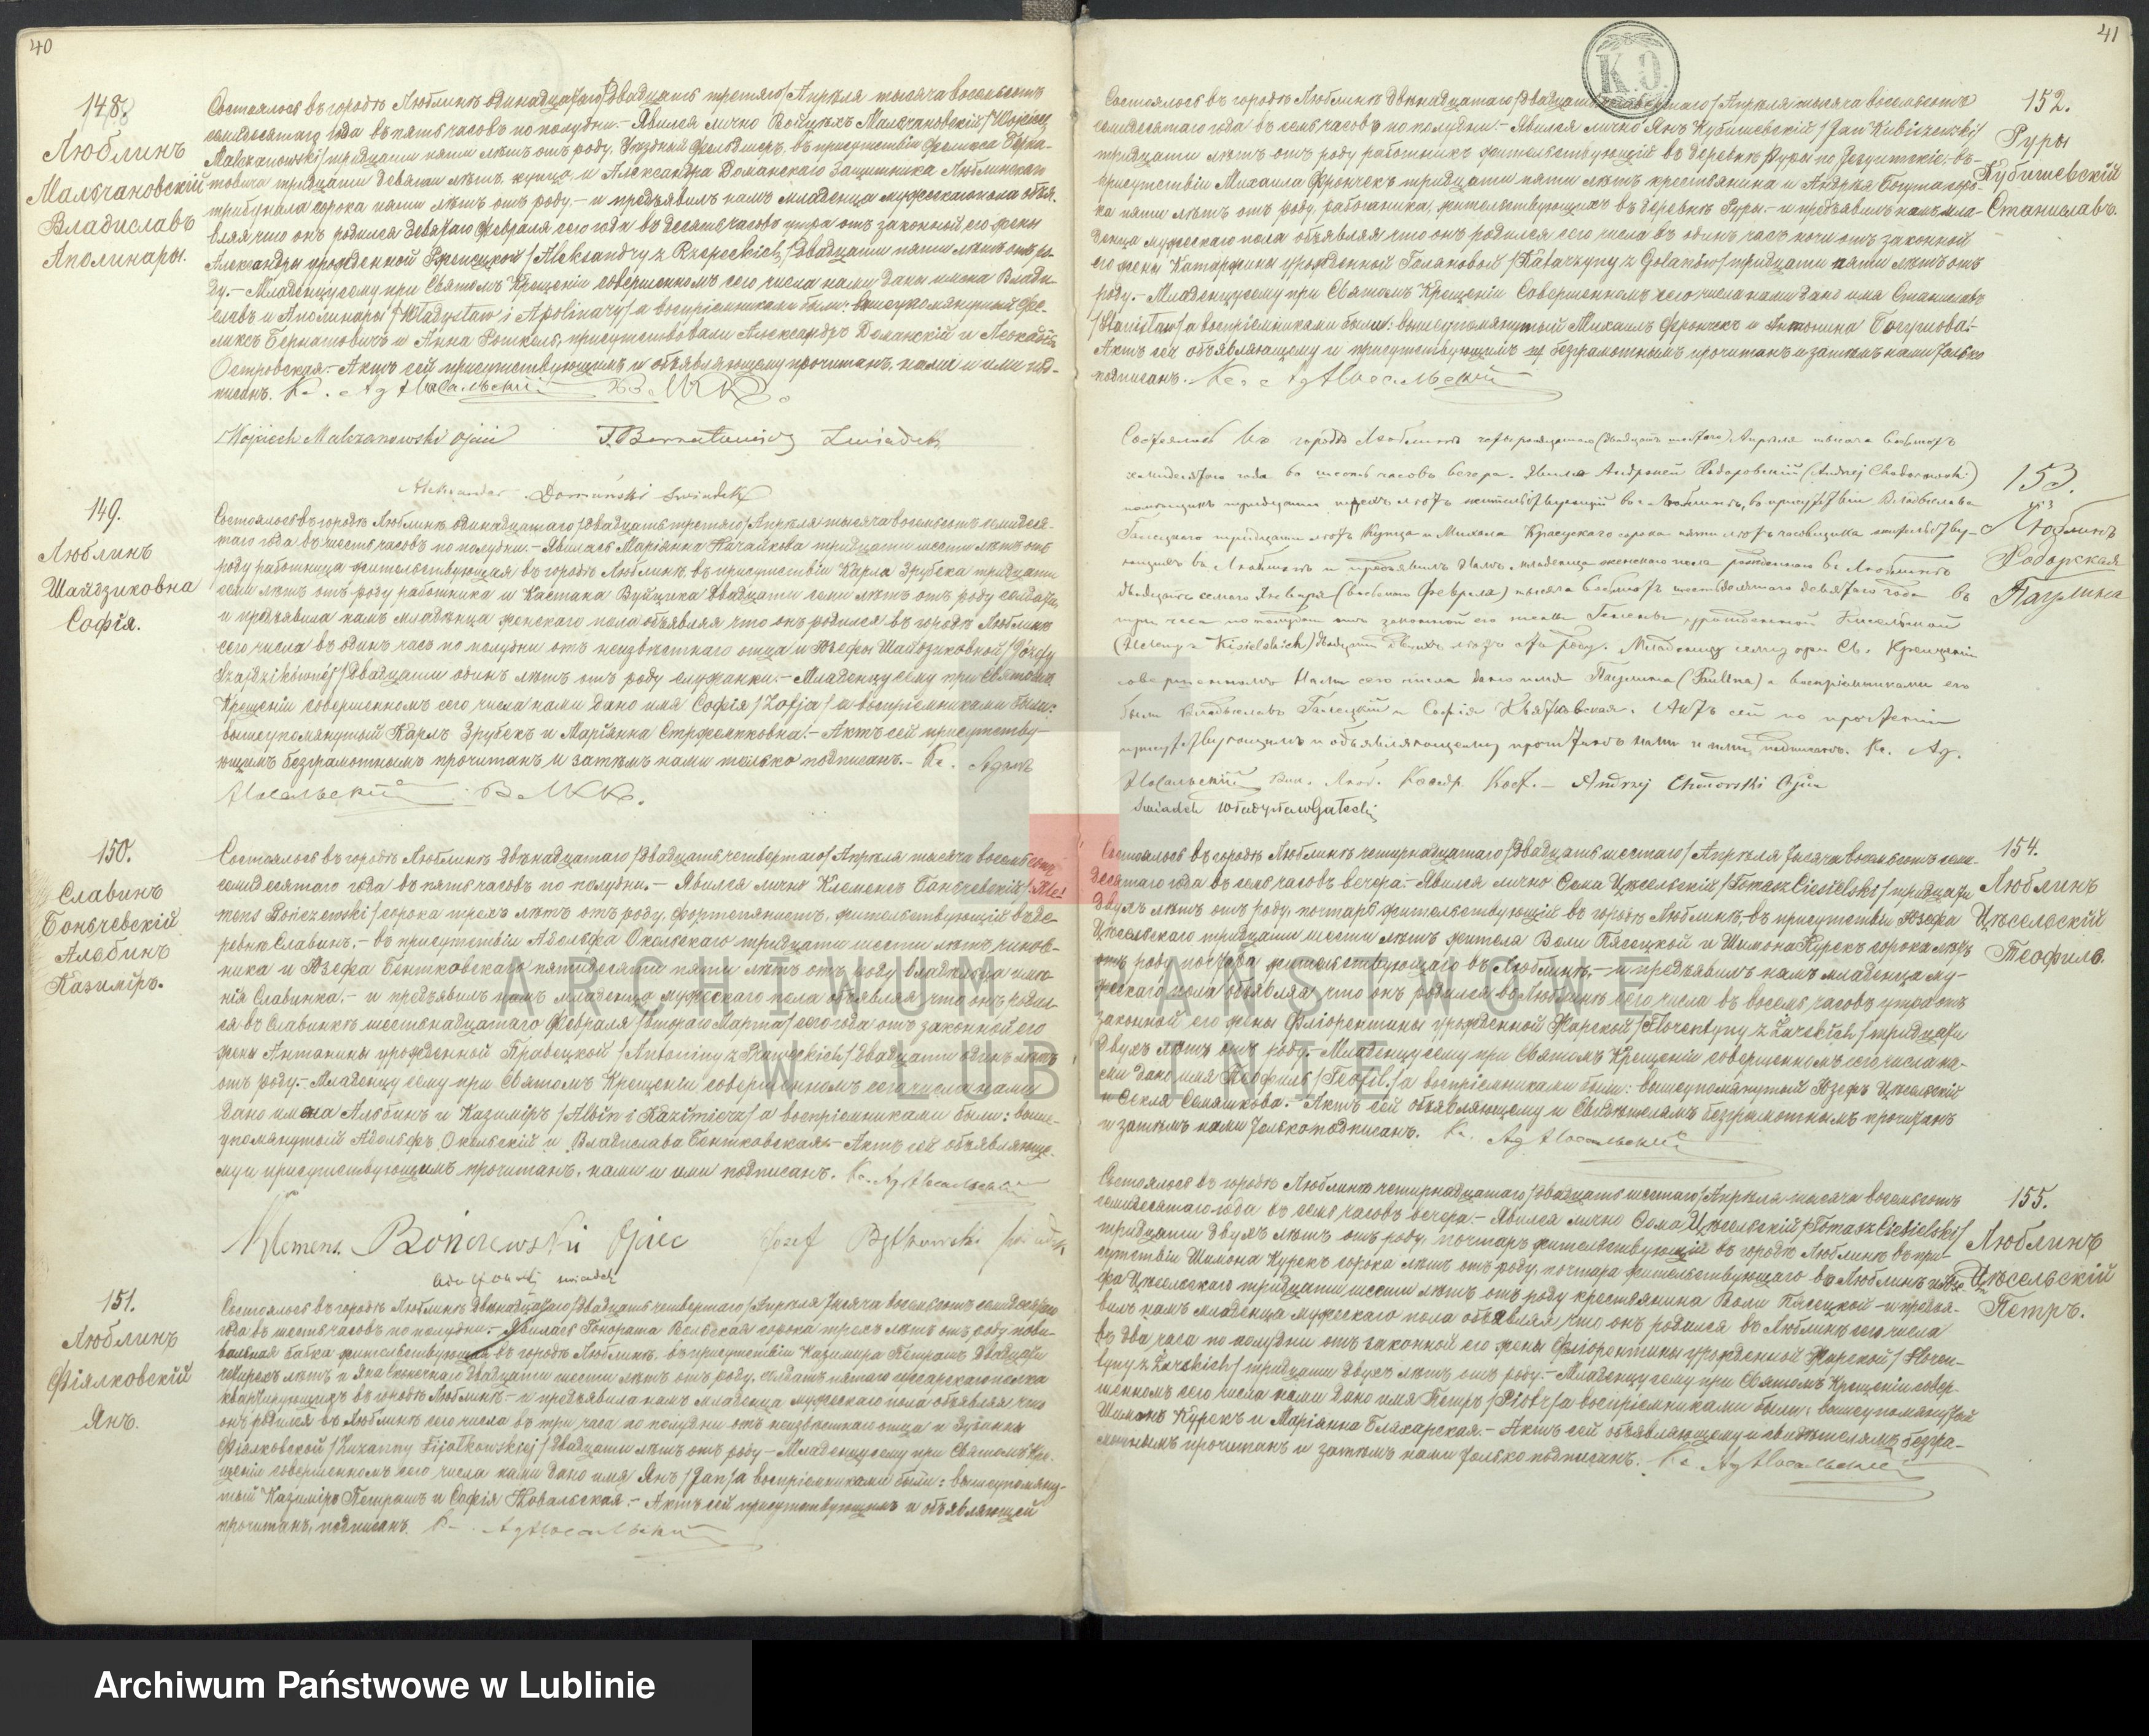 40
148.
Люблинъ
Мальчановскій
Владиславъ
Аполинары.
Состоялось въ городѣ Люблинѣ одинадцатаго /двадцать третяго/ Апрѣля тысяча восемьсотъ
семидесятаго года въ пять часовъ по полудни. – Явился лично Войцѣхъ Мальчановскій /Wojciech
Malczanowski/ тридцати пяти лѣтъ отъ роду, Уѣздный Фельдшеръ, въ присутствіи Феликса Берна-
товича тридцати девяти лѣтъ, купца, и Александра Доманскаго Защитника Люблинскаго
трибунала сорока пяти лѣтъ отъ роду. – и предъявилъ намъ младенца мужескаго пола объя-
вляя что онъ родился девятаго Февраля сего года въ десять часовъ утра отъ законной его жены
Александры урожденной Ржепецкой /Aleksandry z Rzepeckich/ двадцати пяти лѣтъ отъ ро-
ду. – Младенцу сему при Святомъ Крещеніи совершенномъ сего числа нами даны имена Влади-
славъ и Аполинары /Władysław i Apolinary/ а воспріемниками были: вышеупомянутый Фе-
ликсъ Бернатовичъ и Анна Рошкель, присутствовали Александръ Доманскій и Леокадія
Островская. – Актъ сей присутствующимъ и объявляющему прочитанъ, нами и ими под-
писанъ. Кс. Ад Носальскій В. Л. К. К.
Wojciech Malczanowski ojciec F. Bernatowicz Świadek
Aleksander Domański świadek
149.
Люблинъ
Шайдзиковна
Софія.
Состоялось въ городѣ Люблинѣ одинадцатаго /двадцать третяго/ Апрѣля тысяча восемьсотъ семидеся-
таго года въ шесть часовъ по полудни. – Явилась Маріянна Качайкова тридцати шести лѣтъ отъ
роду работница жительствующая въ городѣ Люблинѣ, въ присутствіи Карла Зрубека тридцати
семи лѣтъ отъ роду работника и Каетана Вуйцика двадцати семи лѣтъ отъ роду солдата,
и предъявила намъ младенца женскаго пола объявляя что онъ родился въ городѣ Люблинѣ
сего числа въ одинъ часъ по полудни отъ неизвѣстнаго отца и Юзефы Шайдзиковной /Józefy
Szajdzikównéj/ двадцати одинъ лѣтъ отъ роду служанки. – Младенцу сему при Святомъ
Крещеніи совершенномъ сего числа нами дано имя Софія /Zofja/ а воспріемниками были:
вышеупомянутый Карлъ Зрубекъ и Маріянна – Актъ сей присутству-
ющимъ безграмотнымъ прочитанъ и затѣмъ нами только подписанъ. – Кс. Адамъ
Носальскій В. Л. К. К.
150.
Славинъ
Боньчевскій
Альбинъ
Казиміръ.
Состоялось въ городѣ Люблинѣ двѣнадцатаго /двадцать четвертаго/ Апрѣля тысяча восемьсотъ
семидесятаго года въ пять часовъ по полудни. – Явился лично Клеменсъ Боньчевскій /Kle-
mens Bończewski/ сорока трехъ лѣтъ отъ роду, фортепянистъ, жительствующій въ де-
ревнѣ Славинъ, – въ присутствіи Адольфа Окольскаго тридцати шести лѣтъ чинов-
ника и Юзефа Бентковскаго пятидесяти пяти лѣтъ отъ роду владѣльца имѣ-
нія Славинка. – и предъявилъ намъ младенца мужескаго пола объявляя что онъ родил-
ся въ Славинкѣ шестьнадцатаго Февраля /втораго Марта/ сего года отъ законной его
жены Антонины урожденной Правецкой /Antoniny z Praweckich/ двадцати одинъ лѣтъ
отъ роду. – Младенцу сему при Святомъ Крещеніи совершенномъ сего числа нами
даны имена Альбинъ и Казиміръ /Albin i Kazimierz/ а воспріемниками были: выше-
упомянутый Адольфъ Окольскій и Владислава Бентковская. – Актъ сей объявляюще-
му и присутствующимъ прочитанъ, нами и ими подписанъ. Кс. Ад Носальскій
Klemens Bończewski Ojciec Józef Bętkowski świadek
Adolf Okolski świadek
151.
Люблинъ
Фіялковскій
Янъ.
Состоялось въ городѣ Люблинѣ двѣнадцатаго /двадцать четвертаго/ Апрѣля тысяча восемьсотъ семидесятаго
года въ шесть часовъ по полудни. – Явилась Гонората Вольская сорока трехъ лѣтъ отъ роду, пови-
вальная бабка жительствующая въ городѣ Люблинѣ, въ присутствіи Казимира Петрашъ двадцати
четырехъ лѣтъ и Яна двадцати шести лѣтъ отъ роду, солдатъ пятаго полка
квартирующихъ въ городѣ Люблинѣ – и предъявила намъ младенца мужескаго пола объявляя что
онъ родился въ Люблинѣ сего числа въ три часа по полудни отъ неизвѣстнаго отца и Зузанны
Фіялковской /Zuzanny Fijałkowskiej/ двадцати лѣтъ отъ роду – Младенцу сему при Святомъ Кре-
щеніи совершенномъ сего числа нами дано имя Янъ /Jan/ а воспріемниками были: вышеупомяну-
тый Казиміръ Петрашъ и Софія Ковальская. – Актъ сей присутствующимъ и объявляющей
прочитанъ, подписанъ. Кс. Ад Носальскій
41
К.О.
152.
Руры
Кубишевскій
Станиславъ.
Состоялось въ городѣ Люблинѣ двѣнадцатаго /двадцать четвертаго/ Апрѣля тысяча восемьсотъ
семидесятаго года въ семь часовъ по полудни. – Явился лично Янъ Кубишевскій /Jan Kubiszewski/
тридцати лѣтъ отъ роду работникъ жительствующій въ деревнѣ Руры по Іезуитскіе, въ
присутствіи Михаила Фрончекъ тридцати пяти лѣтъ крестьянина и Андрея Богута соро-
ка пяти лѣтъ отъ роду, работника, жительствующихъ въ деревнѣ Руры. – и предъявилъ намъ мла-
денца мужескаго пола объявляя что онъ родился сего числа въ одинъ часъ ночи отъ законной
его жены Катаржины урожденной Голяновой /Katarzyny z Golanów/ тридцати пяти лѣтъ отъ
роду. – Младенцу сему при Святомъ Крещеніи совершенномъ сего числа нами дано имя Станиславъ
/Stanisław/ а воспріемниками были: вышеупомянутый Михаилъ Фрончекъ и Антонина Богутова. –
Актъ сей объявляющему и присутствующимъ безграмотнымъ прочитанъ и затѣмъ нами только
подписанъ. Кс. Ад Носальскій
153.
Люблинъ
Ходорская
Паулина
Состоялось въ городѣ Люблинѣ четырнадцатаго (двадцать шестаго) Апрѣля тысяча восемьсотъ
семидесятаго года въ шесть часовъ вечера. Явился Андрей (Andrzej
тридцати лѣтъ жительствующій въ Люблинѣ, въ присутствіи Владислава
Галецкаго тридцати лѣтъ Купца и Михала Красуского сорока пяти лѣтъ часовщика жительству-
ющихъ въ Люблинѣ и предъявилъ намъ младенца женскаго пола рожденного въ Люблинѣ
двадцать седьмого Января (восьмаго Февраля) тысяча восемьсотъ шестьдесятаго девятаго года въ
три часа по полудни отъ законной его жены Гелены урожденной Кисельской
(Heleny z Kisielskich) двадцати двухъ лѣтъ отъ роду. Младенцу сему при Св. Крещеніи
совершенномъ Нами сего числа дано имя Паулина (Paulina) а воспріемниками его
были Владиславъ Галецкій и Софія Квятковская. Актъ сей по прочтеніи
присутствующимъ и объявляющему нами и ими подписанъ. Кс. Ад.
Носальскій Вик. Люб. Каѳедр. Кост. – Andrzej Chodorski Ojciec
Świadek Władysław Gałecki
154.
Люблинъ
Цѣсельскій
Теофилъ.
Состоялось въ городѣ Люблинѣ четырнадцатаго /двадцать шестаго/ Апрѣля тысяча восемьсотъ семи-
десятаго года въ семь часовъ вечера. – Явился лично Ѳома Цѣсельскій /Tomasz Ciesielski/ тридцати
двухъ лѣтъ отъ роду, почтарь жительствующій въ городѣ Люблинѣ – въ присутствіи Юзефа
Цѣсельскаго тридцати шести лѣтъ жителя Воли Пясецкой и Шимона Курекъ сорока лѣтъ
отъ роду почтаря жительствующаго въ Люблинѣ, – и предъявилъ намъ младенца му-
жескаго пола объявляя, что онъ родился въ Люблинѣ сего числа въ восемь часовъ утра отъ
законной его жены Флорентины урожденной Жарской /Florentyny z Żarskich/ тридцати
двухъ лѣтъ отъ роду. – Младенцу сему при Святомъ Крещеніи совершенномъ сего числа на-
ми дано имя Теофиль /Teofil/ а воспріемниками были: вышеупомянутый Юзефъ Цѣсельскій
и Секла Семяшкова. – Актъ сей объявляющему и Свидѣтелямъ безграмотнымъ прочитанъ
и затѣмъ нами только подписанъ. Кс. Ад Носальскій
155.
Люблинъ
Цѣсельскій
Петръ.
Состоялось въ городѣ Люблинѣ четырнадцатаго /двадцать шестаго/ Апрѣля тысяча восемьсотъ
семидесятаго года въ семь часовъ вечера. – Явился лично Ѳома Цѣсельскій /Tomasz Ciesielski/
тридцати двухъ лѣтъ отъ роду, почтарь жительствующій въ городѣ Люблинѣ въ при-
сутствіи Шимона Курекъ сорока лѣтъ отъ роду, почтаря жительствующаго въ Люблинѣ и Юзе-
фа Цѣсельскаго тридцати шести лѣтъ отъ роду крестьянина Воли Пясецкой – и предъя-
вилъ намъ младенца мужескаго пола объявляя, что онъ родился въ Люблинѣ сего числа
въ два часа по полудни отъ законной его жены Флорентины урожденной Жарской /Floren-
tyny z Żarskich/ тридцати двухъ лѣтъ отъ роду. – Младенцу сему при Святомъ Крещеніи совер-
шенномъ сего числа нами дано имя Петръ /Piotr/ а воспріемниками были: вышеупомянутый
Шимонъ Курекъ и Маріянна Бляхарская. – Актъ сей объявляющему и свидѣтелямъ безгра-
мотнымъ прочитанъ и затѣмъ нами только подписанъ. Кс. Ад Носальскій
ARCHIWUM PAŃSTWOWE
W LUBLINIE
Archiwum Państwowe w Lublinie